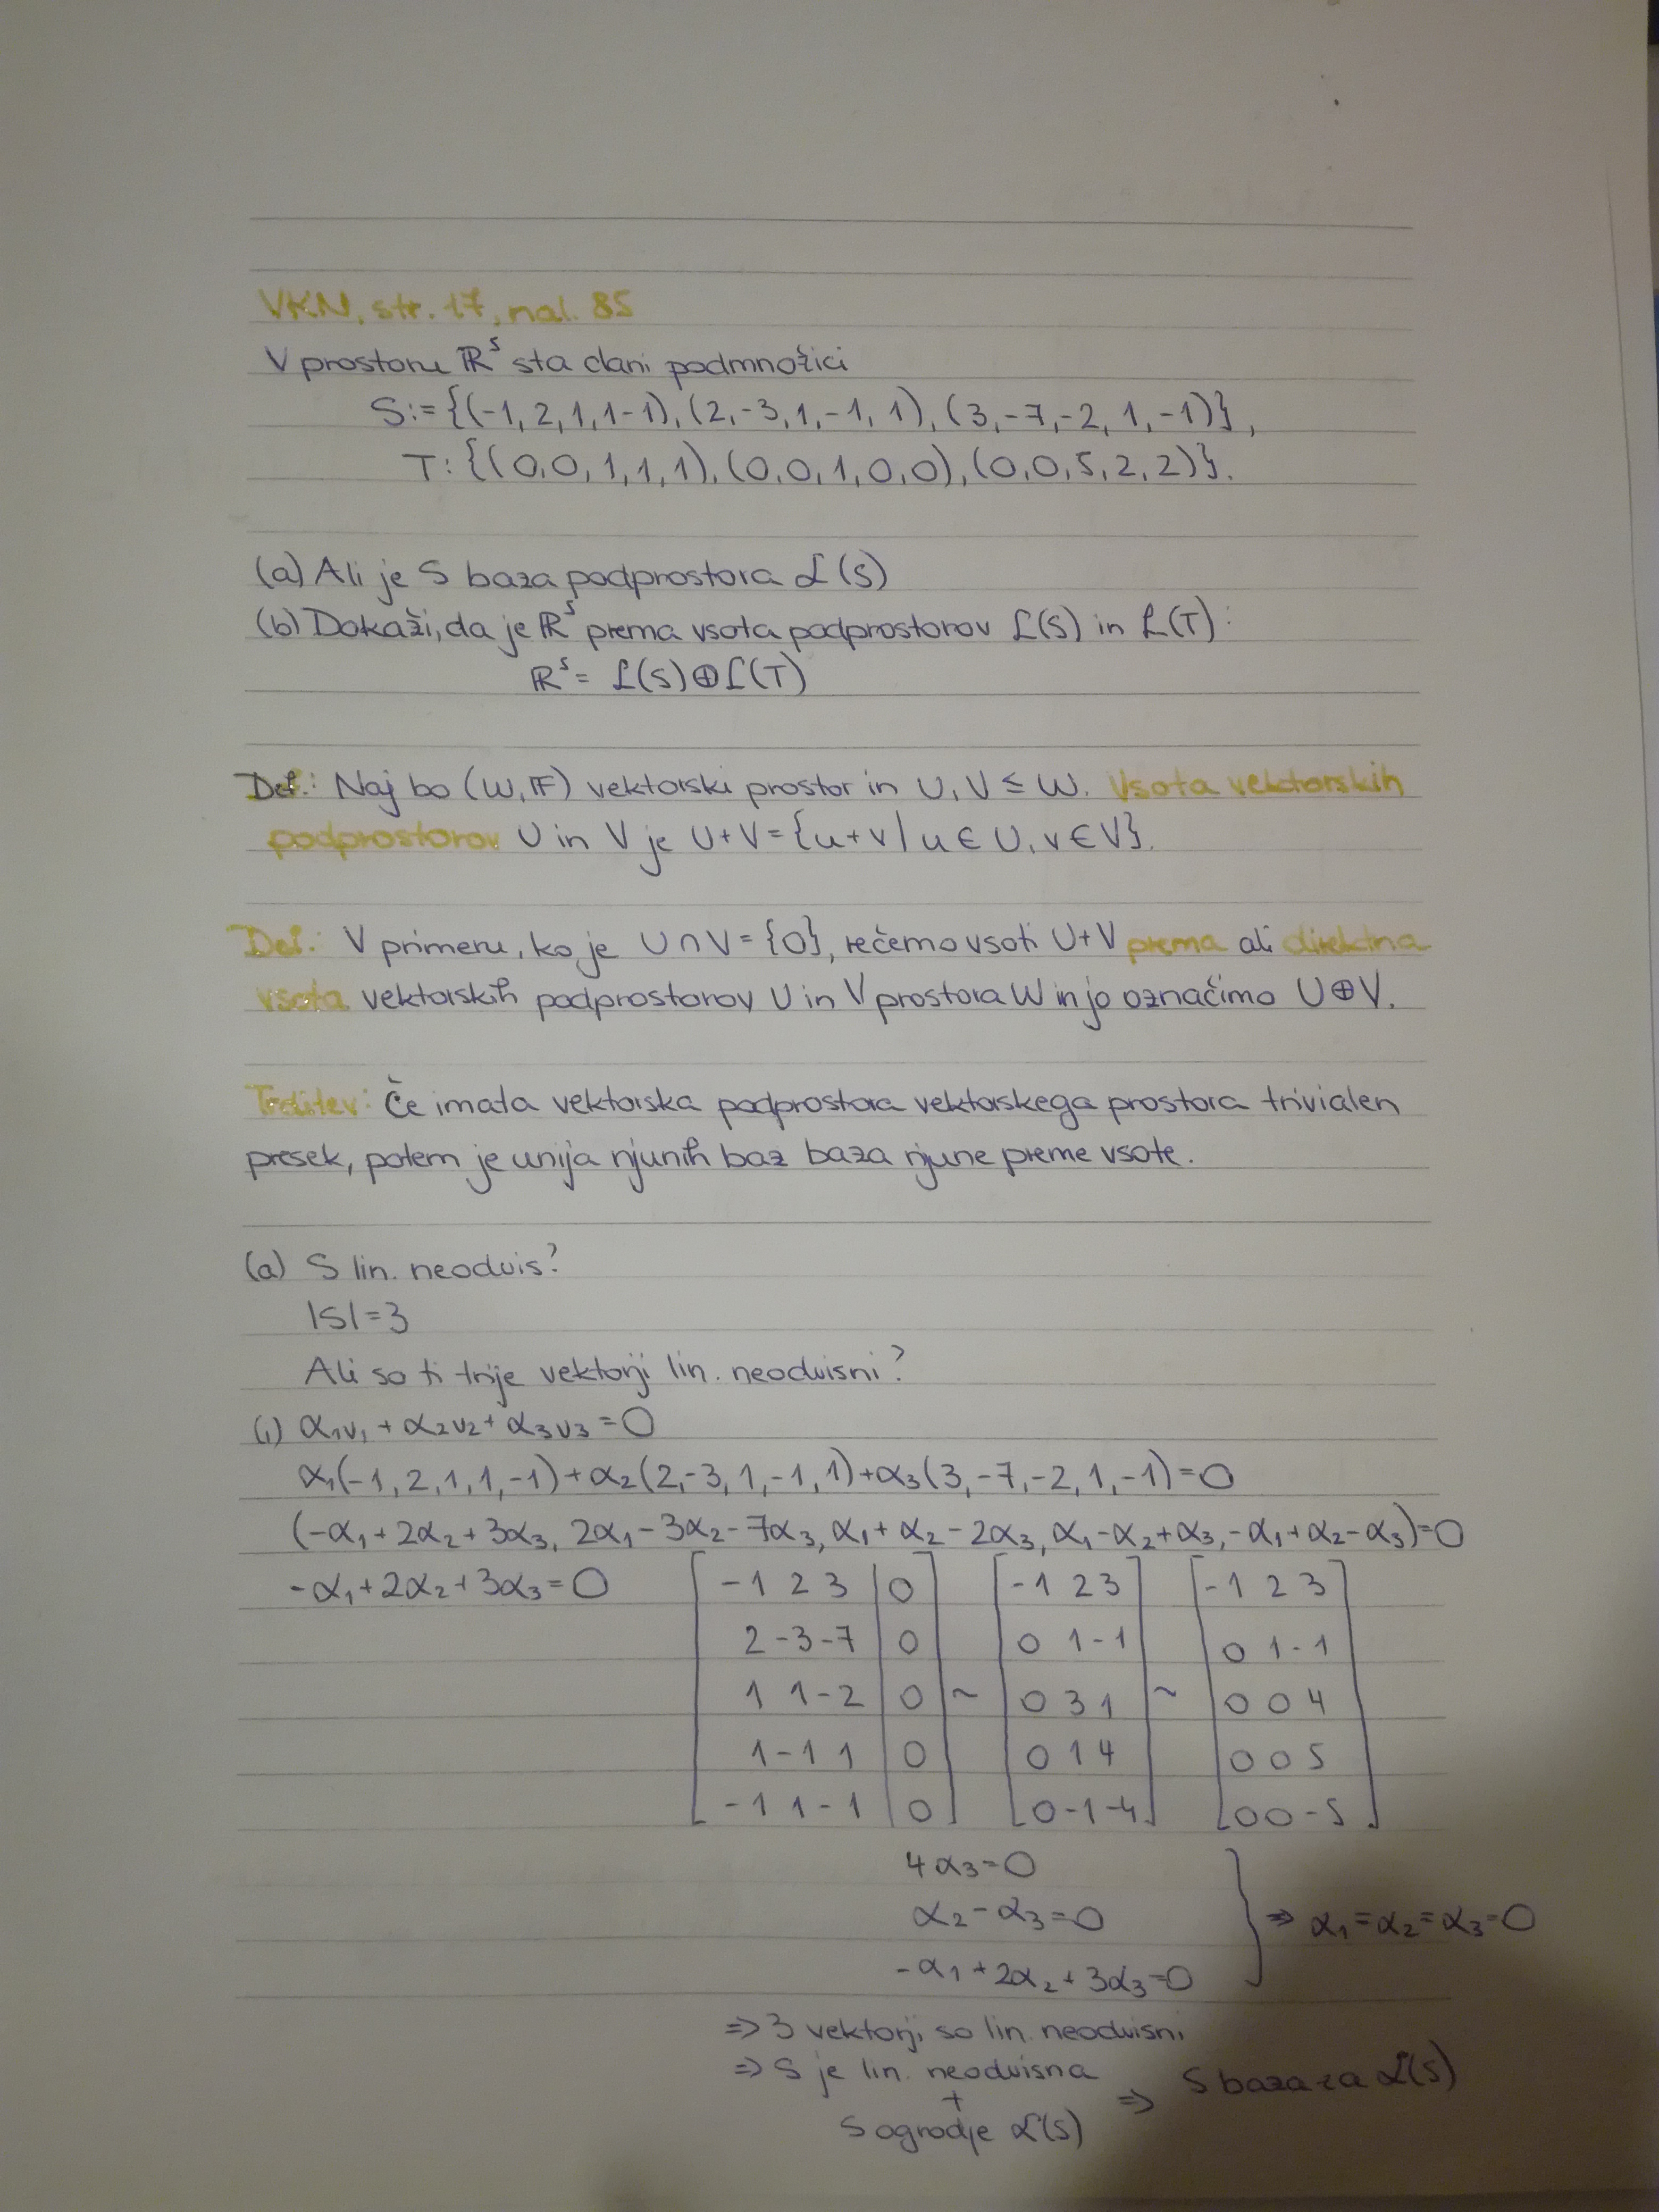 VKN, str. 17, nal. 85
V prostoru ℝ⁵ sta dani podmnožici
S:={(-1,2,1,1-1),(2,-3,1,-1,1),(3,-7,-2,1,-1)},
T:{(0,0,1,1,1),(0,0,1,0,0),(0,0,5,2,2)}.
(a) Ali je S baza podprostora ℒ(S)
(b) Dokaži, da je ℝ⁵ prema vsota podprostorov ℒ(S) in ℒ(T):
ℝ⁵= ℒ(S)⊕ℒ(T)
Def.: Naj bo (W,𝔽) vektorski prostor in U,V ≤ W. Vsota vektorskih
podprostorov U in V je U+V={u+v|u∈U,v∈V}.
Def.: V primeru, ko je U∩V={0}, rečemo vsoti U+V prema ali direktna
vsota vektorskih podprostorov U in V prostora W in jo označimo U⊕V.
Trditev: Če imata vektorska podprostora vektorskega prostora trivialen
presek, potem je unija njunih baz baza njune preme vsote.
(a) S lin. neodvis?
|S|=3
Ali so ti trije vektorji lin. neodvisni?
(i) α₁v₁+α₂v₂+α₃v₃=0
α₁(-1,2,1,1,-1)+α₂(2,-3,1,-1,1)+α₃(3,-7,-2,1,-1)=0
(-α₁+2α₂+3α₃, 2α₁-3α₂-7α₃, α₁+α₂-2α₃, α₁-α₂+α₃, -α₁+α₂-α₃)=0
-α₁+2α₂+3α₃=0 [-1 2 3 | 0] [-1 2 3] [-1 2 3]
2 -3 -7 | 0 0 1 -1 0 1 -1
1 1 -2 | 0 ~ 0 3 1 ~ 0 0 4
1 -1 1 | 0 0 1 4 0 0 5
-1 1 -1 | 0 0 -1 -4 0 0 -5
4α₃=0
α₂-α₃=0 } ⇒ α₁=α₂=α₃=0
-α₁+2α₂+3α₃=0
⇒ 3 vektorji so lin. neodvisni
⇒ S je lin. neodvisna
+ ⇒ S baza za ℒ(S)
S ogrodje ℒ(S)